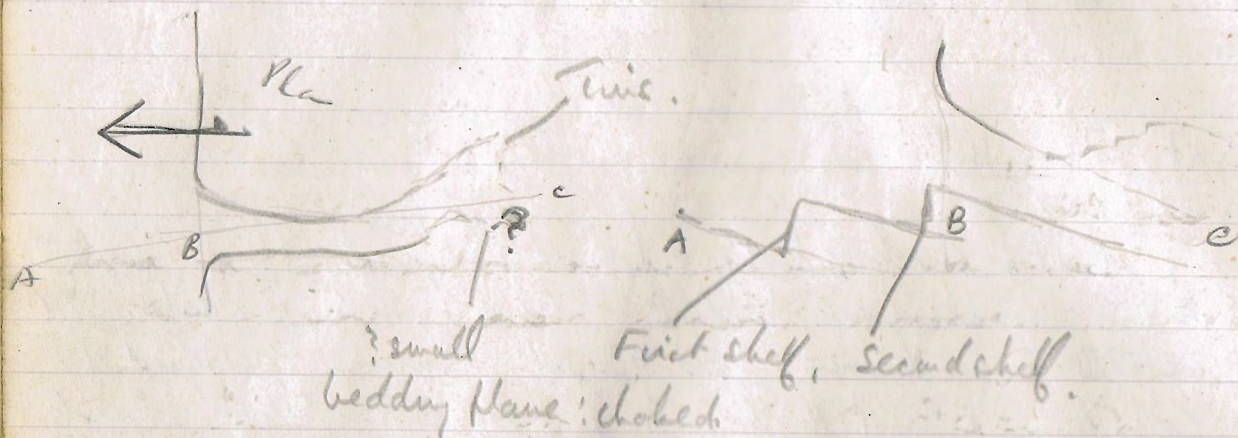 Plan
This.
A B C
?
A B C
? small
bedding plane : choked
First shelf. Second shelf.